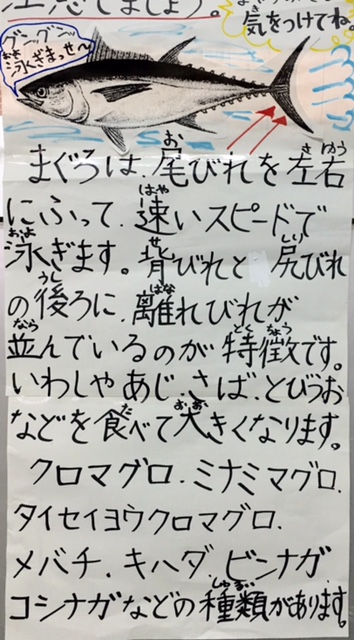 注意しましょう。
気をつけてね。
ブーーン
泳ぎまっせ〜
まぐろは、尾びれを左右
にふって、速いスピードで
泳ぎます。背びれと尻びれ
の後ろに、離れびれが
並んでいるのが特徴です。
いわしやあじ、さば、とびうお
などを食べて大きくなります。
クロマグロ、ミナミマグロ、
タイセイヨウクロマグロ、
メバチ、キハダ、ビンナガ、
コシナガなどの種類があります。